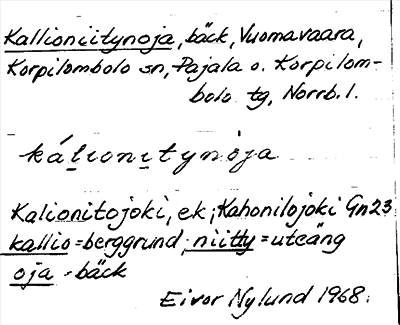 Kallioniitynoja, bäck, Vuomavaara,
Korpilombolo sn, Pajala o. Korpilom-
bolo tg, Norrb. l.
kálionitynoja
Kalionitojoki, ek; Kahonilojoki Gn23
kallio = berggrund; niitty = uteäng
oja - bäck
Eivor Nylund 1968.